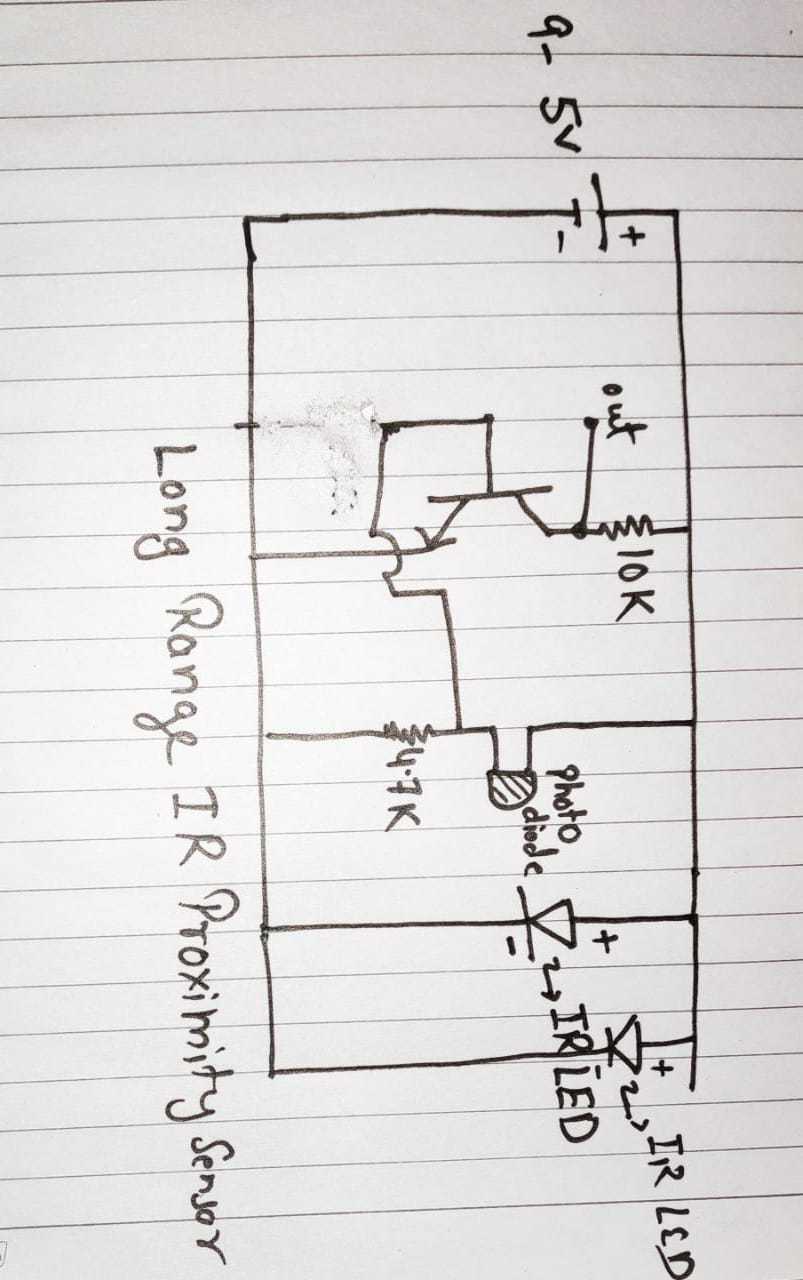 9- 5v
+
-
out
10K
photo
diode
4.7K
+
-
IR LED
+
-
IR LED
Long Range IR Proximity Sensor